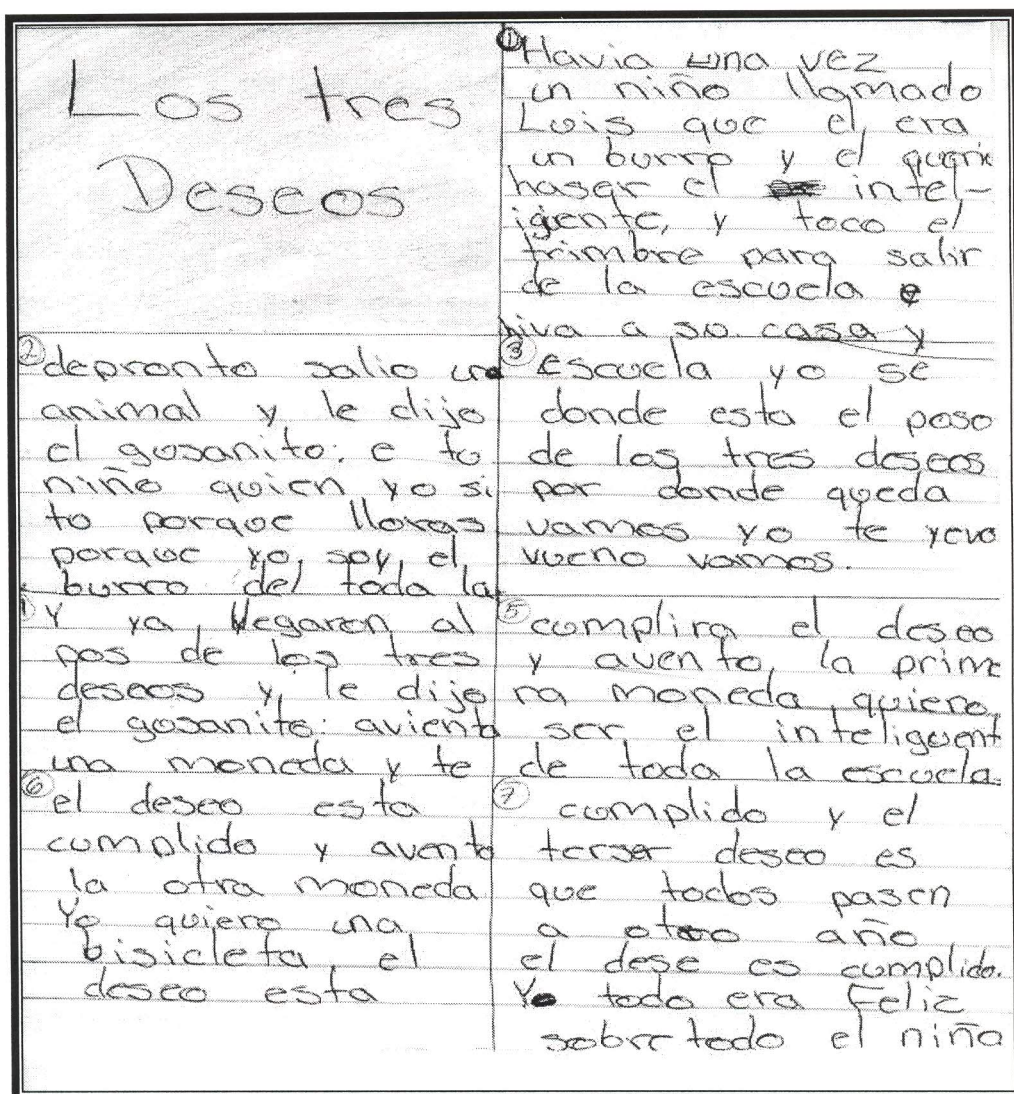 Los tres
Deseos
①Havia una vez
un niño llamado
Luis que el era
un burro y el querie
haser el intel-
igente, y toco el
trimbre para salir
de la escuela e
hiva a su casa y
②depronto salio un
animal y le dijo
el gusanito: e tu
niño quien yo si
tu porque lloras
porque yo soy el
burro del toda la
③escuela yo se
donde esta el poso
de los tres deseos
por donde queda
vamos yo te yevo
vueno vamos.
④Y ya llegaron al
pos de los tres
deseos y le dijo
el gusanito: avienta
una moneda y te
⑤cumplira el deseo
y avento la prime
ra moneda quiero
ser el inteliguent
de toda la escuela.
⑥el deseo esta
cumplido y avento
la otra moneda
Yo quiero una
bisicleta el
deseo esta
⑦cumplido y el
terser deseo es
que todos pasen
a otro año
el dese es cumplido.
Y todo era Feliz
sobre todo el niño